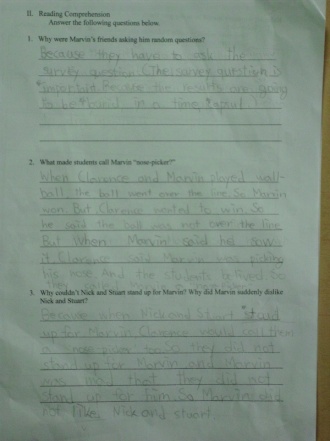 II. Reading Comprehension
Answer the following questions below.
1. Why were Marvin's friends asking him random questions?
Because they have to ask the
survey question. (The survey question is
important. Because the results are going
to be found in a time
2. What made students call Marvin "nose-picker?"
When Clarence and Marvin played wall-
ball, the ball went over the line. So Marvin
won. But Clarence wanted to win. So
he said the ball was not over the line.
But When Marvin said he saw
it Clarence said Marvin was picking
his nose. And the students believed. So
3. Why couldn't Nick and Stuart stand up for Marvin? Why did Marvin suddenly dislike
Nick and Stuart?
Because when Nick and Stuart stand
up for Marvin Clarence would call them
a nose-picker too. So they did not
stand up for Marvin and Marvin
was mad that they did not
stand up for him. So Marvin did
not like Nick and stuart.